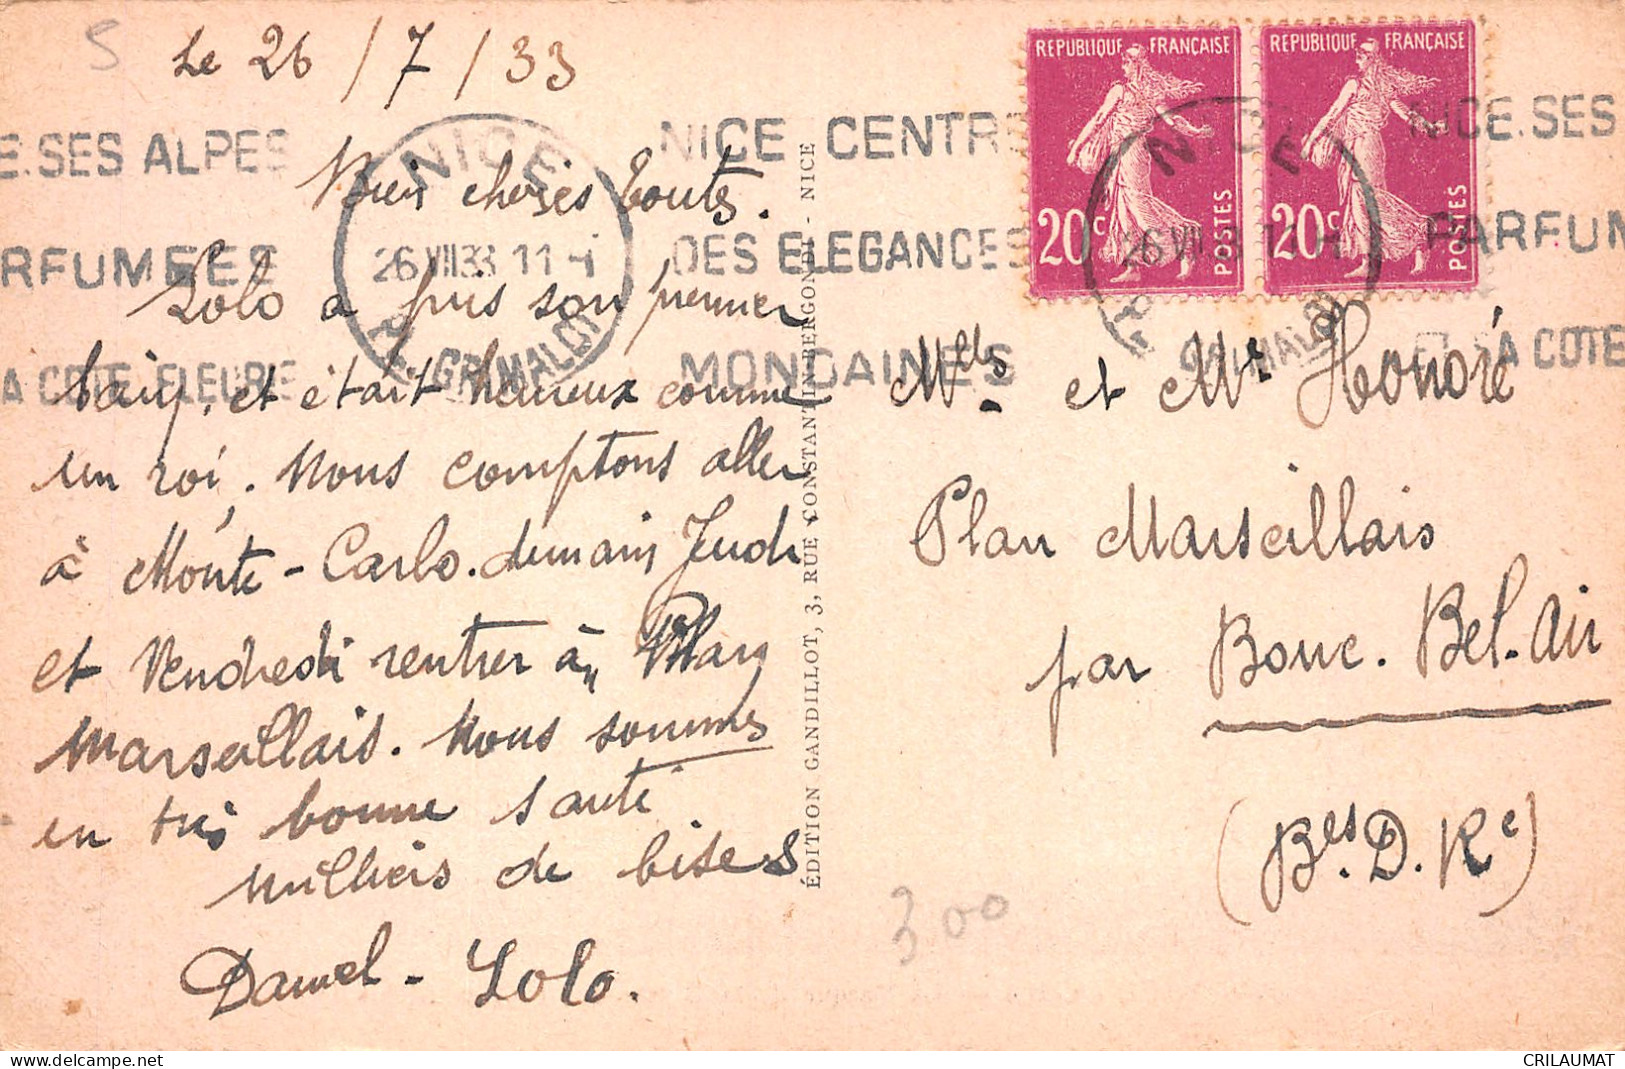 5
Le 26 / 7 / 33
E.SES ALPES
RFUMEES
A COTE FLEURIE
NICE
26 VII 33 11-
R. GRIMALDI
NICE CENTRE
DES ELEGANCES
MONDAINES
REPUBLIQUE FRANÇAISE
20c
POSTES
REPUBLIQUE FRANÇAISE
20c
POSTES
NICE
26 VII 3 11-
GRIMALDI
NICE.SES
PARFUM
ET SA COTE
Bien cheries toutes.
Lolo a pris son premier
bain, et était heureux comme
un roi. Nous comptons aller
à Monte-Carlo. demain Jeudi
et Vendredi rentrer à " Plan
Marseillais. Nous sommes
en très bonne santé
milliers de bises
Daniel - Lolo.
ÉDITION GANDILLOT, 3, RUE CONSTANTIN BERGONDI - NICE
Melles et Mr Honoré
Plan Marseillais
par Bouc. Bel-Air
(Bes. D. Re)
300
CRILAUMAT